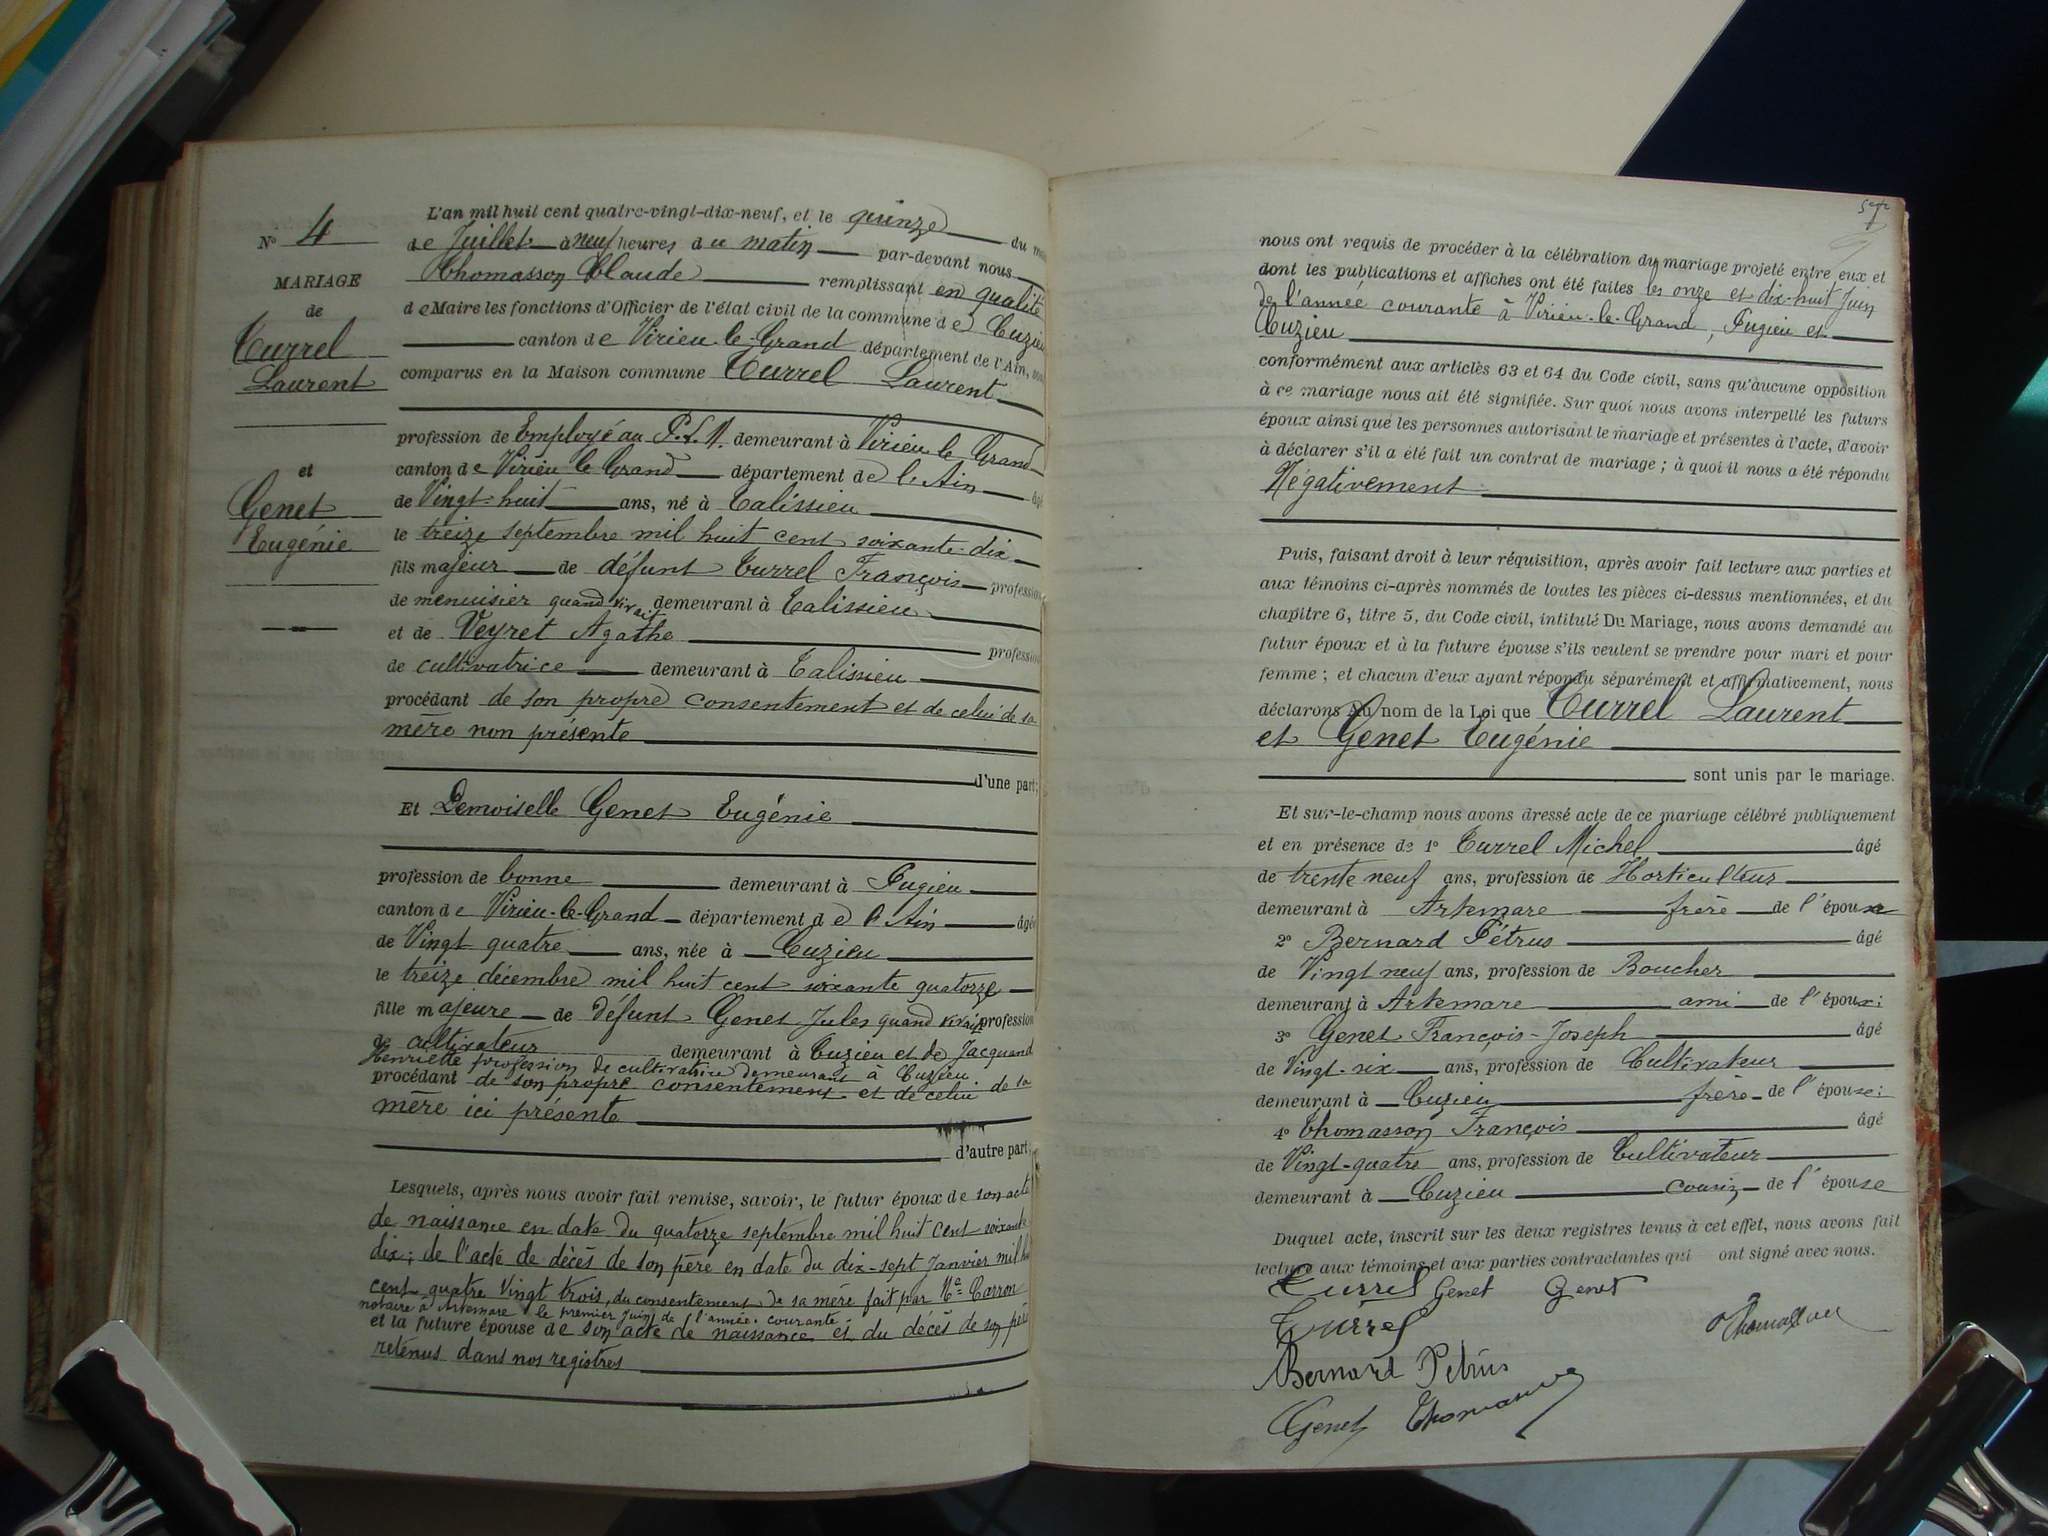 N° 4
MARIAGE
de
Turrel
Laurent
et
Genet
Eugénie
L'an mil huit cent quatre-vingt-dix-neuf, et le quinze du
de Juillet à neuf heures du matin par-devant nous
Thomasson Claude remplissant en qualité
de Maire les fonctions d'Officier de l'état civil de la commune de Cuzieu
canton de Virieu-le-Grand département de l'Ain,
comparus en la Maison commune Turrel Laurent
profession de Employé au P.L.M. demeurant à Virieu le Grand
canton de Virieu le Grand département de l'Ain âgé
de Vingt-huit ans, né à Talissieu
le treize septembre mil huit cent soixante-dix
fils majeur de défunt Turrel François profession
de menuisier quand vivait demeurant à Talissieu
et de Veyret Agathe profession
de cultivatrice demeurant à Talissieu
procédant de son propre consentement et de celui de sa
mère non présente
d'une part;
Et Demoiselle Genet Eugénie
profession de bonne demeurant à Pugieu
canton de Virieu-le-Grand département de l'Ain âgée
de Vingt quatre ans, née à Cuzieu
le treize décembre mil huit cent soixante quatorze
fille majeure de défunt Genet Jules quand vivait profession
de cultivateur demeurant à Cuzieu et de Jacquand
Henriette profession de cultivatrice demeurant à Cuzieu
procédant de son propre consentement et de celui de sa
mère ici présente
d'autre part;
Lesquels, après nous avoir fait remise, savoir, le futur époux de son acte
de naissance en date du quatorze septembre mil huit cent soixante
dix; de l'acte de décès de son père en date du dix-sept Janvier mil hui
cent quatre Vingt trois, du consentement de sa mère fait par Me Carron
notaire à Artemare le premier Juin de l'année courante.
et la future épouse de son acte de naissance et du décès de son père
retenus dans nos registres
nous ont requis de procéder à la célébration du mariage projeté entre eux et
dont les publications et affiches ont été faites les onze et dix-huit Juin
de l'année courante à Virieu-le-Grand, Pugieu et
Cuzieu
conformément aux articles 63 et 64 du Code civil, sans qu'aucune opposition
à ce mariage nous ait été signifiée. Sur quoi nous avons interpellé les futurs
époux ainsi que les personnes autorisant le mariage et présentes à l'acte, d'avoir
à déclarer s'il a été fait un contrat de mariage; à quoi il nous a été répondu
Négativement
Puis, faisant droit à leur réquisition, après avoir fait lecture aux parties et
aux témoins ci-après nommés de toutes les pièces ci-dessus mentionnées, et du
chapitre 6, titre 5, du Code civil, intitulé Du Mariage, nous avons demandé au
futur époux et à la future épouse s'ils veulent se prendre pour mari et pour
femme; et chacun d'eux ayant répondu séparément et affirmativement, nous
déclarons au nom de la Loi que Turrel Laurent
et Genet Eugénie
sont unis par le mariage.
Et sur-le-champ nous avons dressé acte de ce mariage célébré publiquement
et en présence de 1° Turrel Michel âgé
de trente neuf ans, profession de Horticulteur
demeurant à Artemare frère de l'époux
2° Bernard Pétrus âgé
de Vingt neuf ans, profession de Boucher
demeurant à Artemare ami de l'époux;
3° Genet François-Joseph âgé
de Vingt-six ans, profession de Cultivateur
demeurant à Cuzieu frère de l'épouse;
4° Thomasson François âgé
de Vingt-quatre ans, profession de Cultivateur
demeurant à Cuzieu cousin de l'épouse
Duquel acte, inscrit sur les deux registres tenus à cet effet, nous avons fait
lecture aux témoins et aux parties contractantes qui ont signé avec nous.
Turrel Genet Genet
Turrel Thomasson
Bernard Petrus
Genet Thomasson